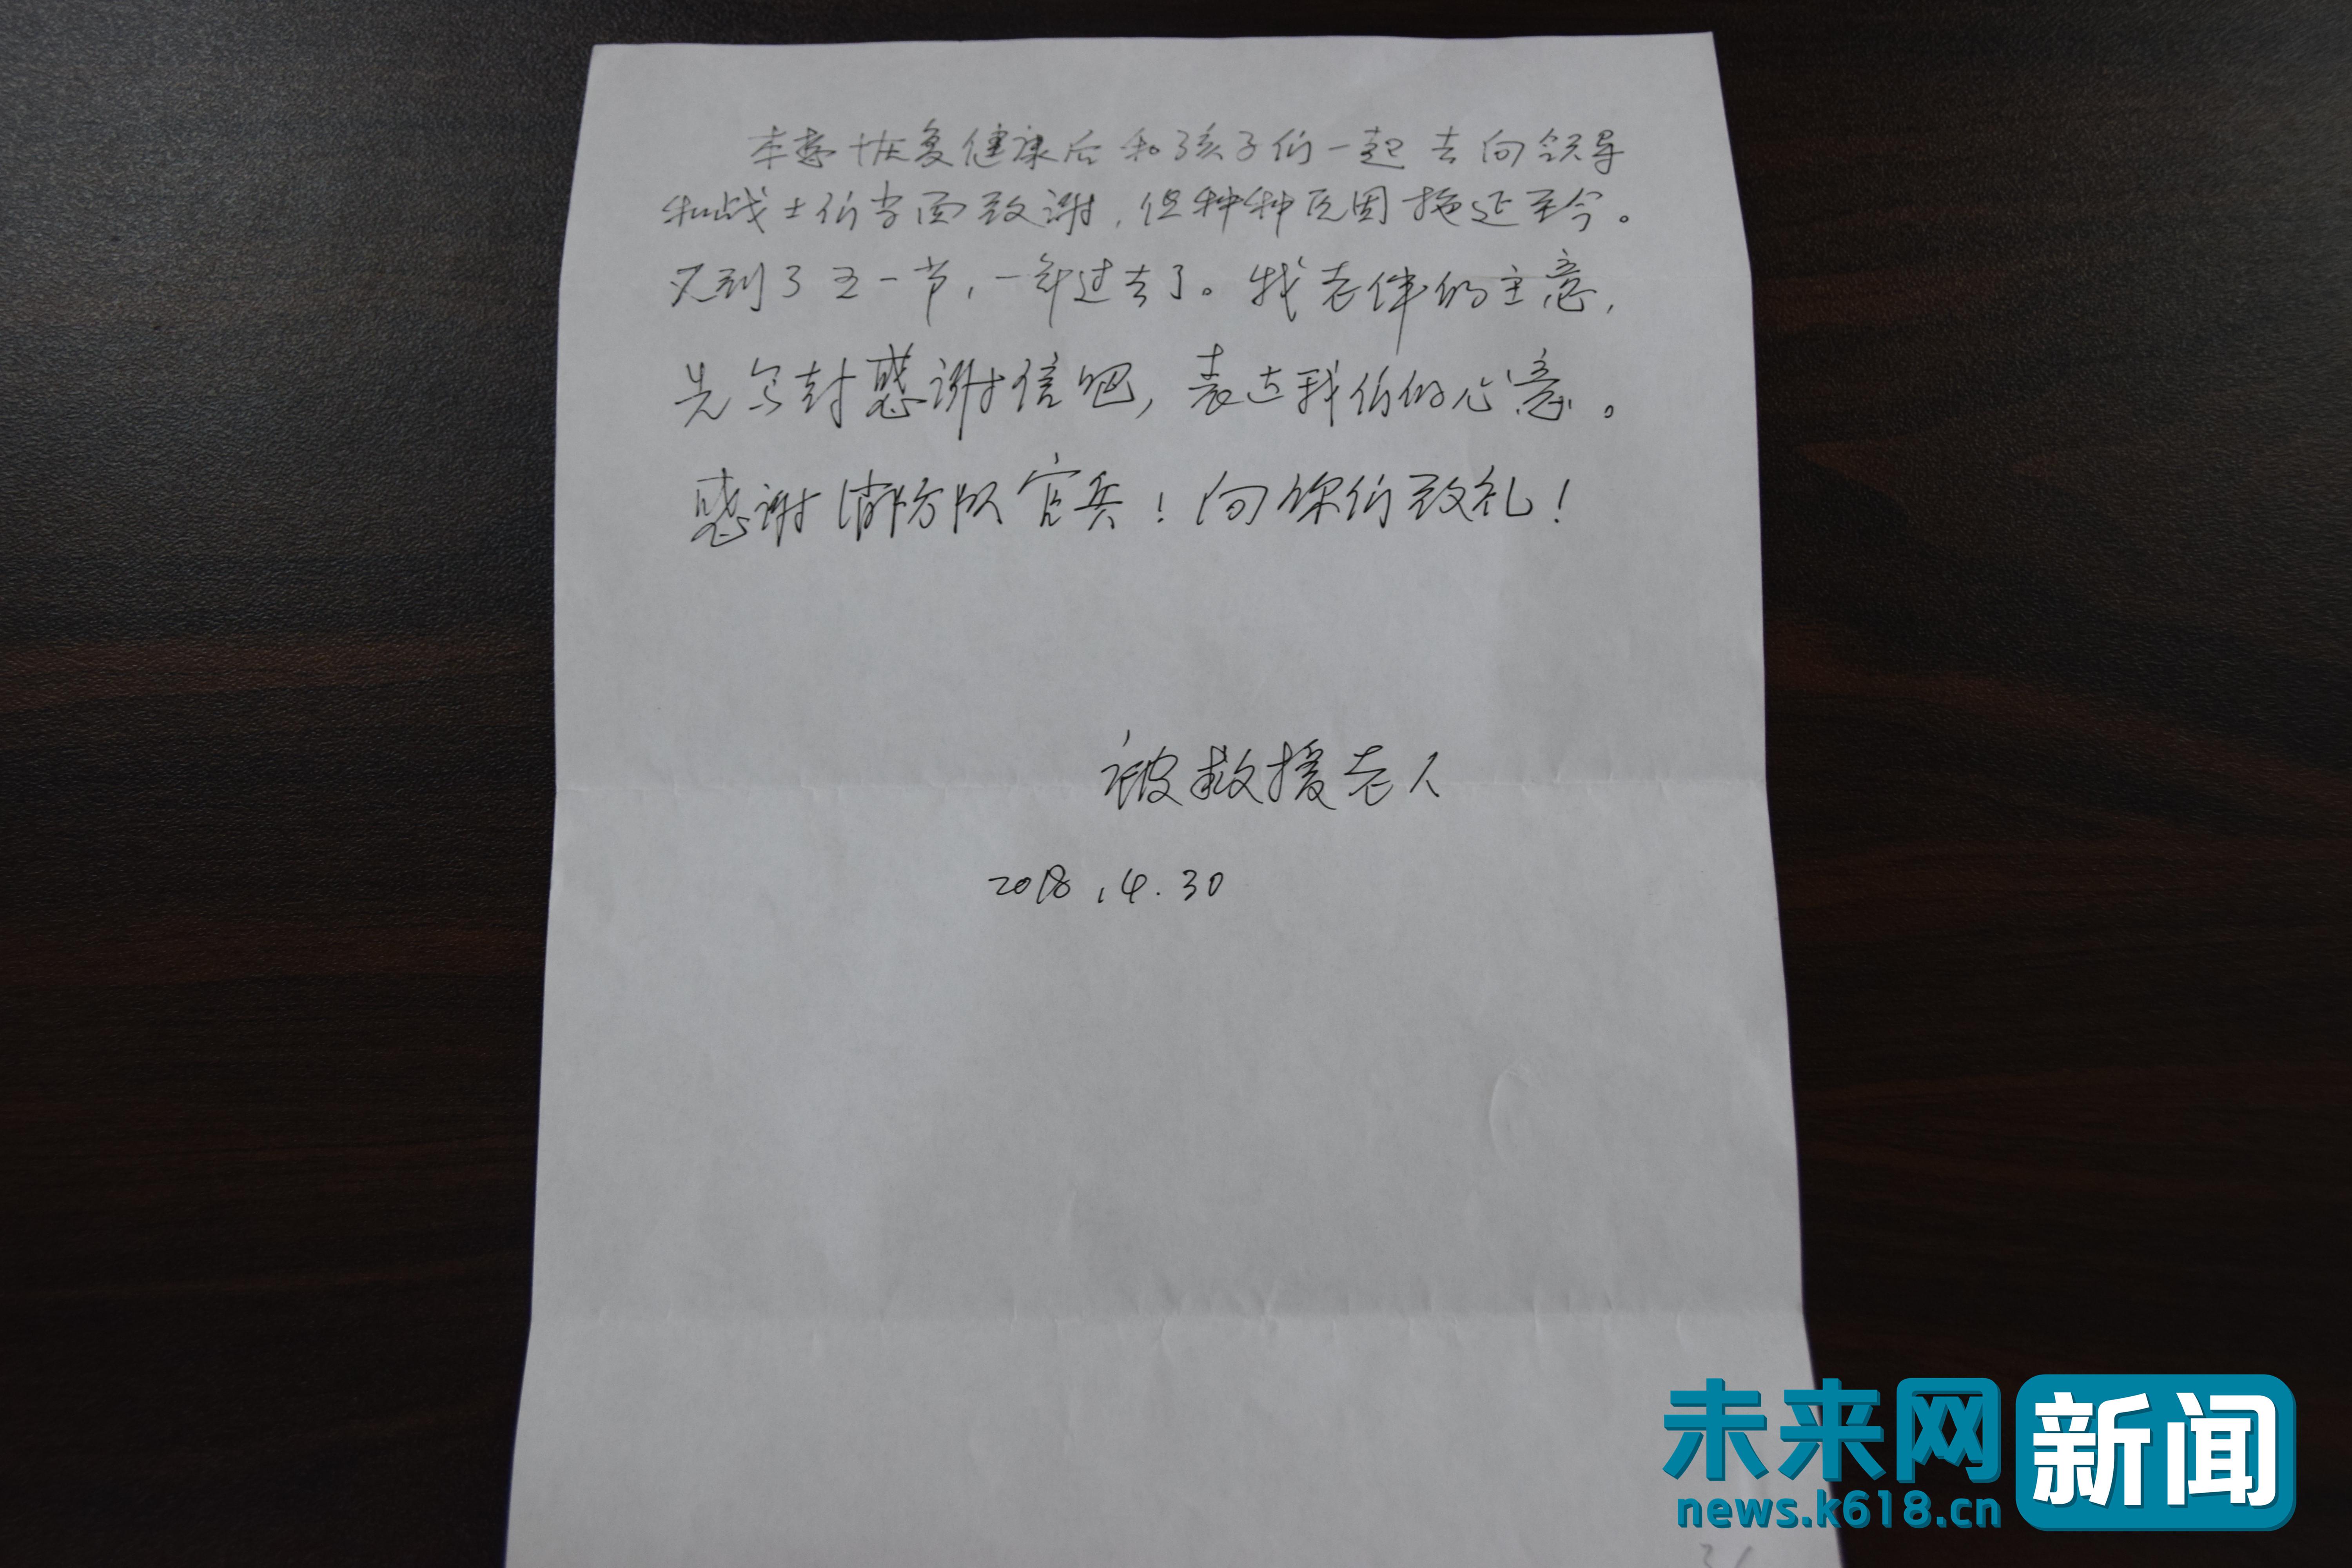 本想恢复健康后和孩子们一起去向领导
和战士们当面致谢，但种种原因拖延至今。
又到了五一节，一年过去了。我老伴的主意，
先写封感谢信吧，表达我们的心意。
感谢消防队官兵！向你们致礼！
被救援老人
2018.4.30
未来网 新闻
news.k618.cn